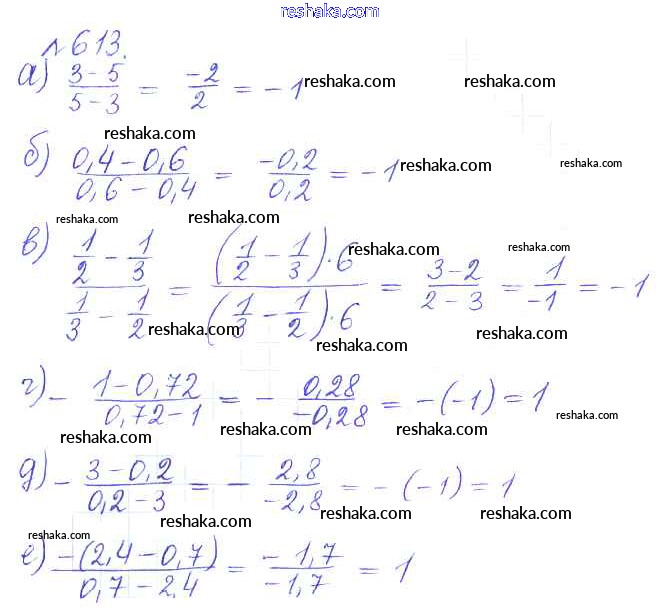 reshaka.com
№613.
а) (3-5)/(5-3) = (-2)/2 = -1 reshaka.com
reshaka.com
б) (0,4-0,6)/(0,6-0,4) = (-0,2)/(0,2) = -1 reshaka.com reshaka.com
reshaka.com reshaka.com
в) (1/2 - 1/3)/(1/3 - 1/2) = ((1/2 - 1/3)·6)/((1/3 - 1/2)·6) = (3-2)/(2-3) = 1/(-1) = -1
reshaka.com reshaka.com
reshaka.com reshaka.com
reshaka.com reshaka.com
reshaka.com
г) - (1-0,72)/(0,72-1) = - (0,28)/(-0,28) = -(-1) = 1 reshaka.com
reshaka.com reshaka.com reshaka.com
д) - (3-0,2)/(0,2-3) = - (2,8)/(-2,8) = -(-1) = 1
reshaka.com reshaka.com
reshaka.com reshaka.com
е) (-(2,4-0,7))/(0,7-2,4) = (-1,7)/(-1,7) = 1
reshaka.com reshaka.com reshaka.com